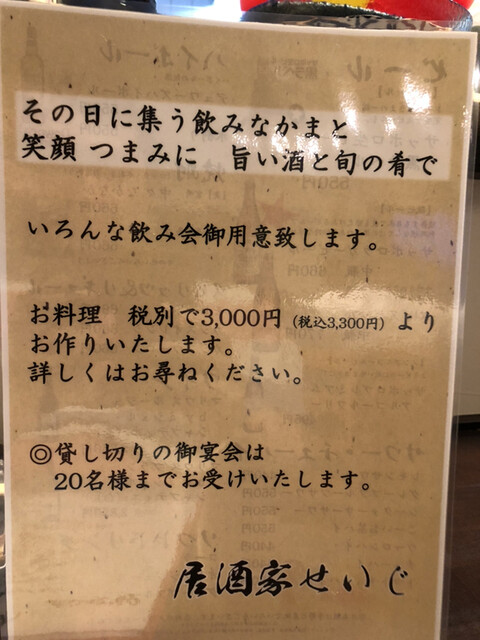 その日に集う飲みなかまと
笑顔 つまみに 旨い酒と旬の肴で
いろんな飲み会御用意致します。
お料理 税別で3,000円 (税込3,300円) より
お作りいたします。
詳しくはお尋ねください。
◎貸し切りの御宴会は
20名様までお受けいたします。
居酒家せいじ